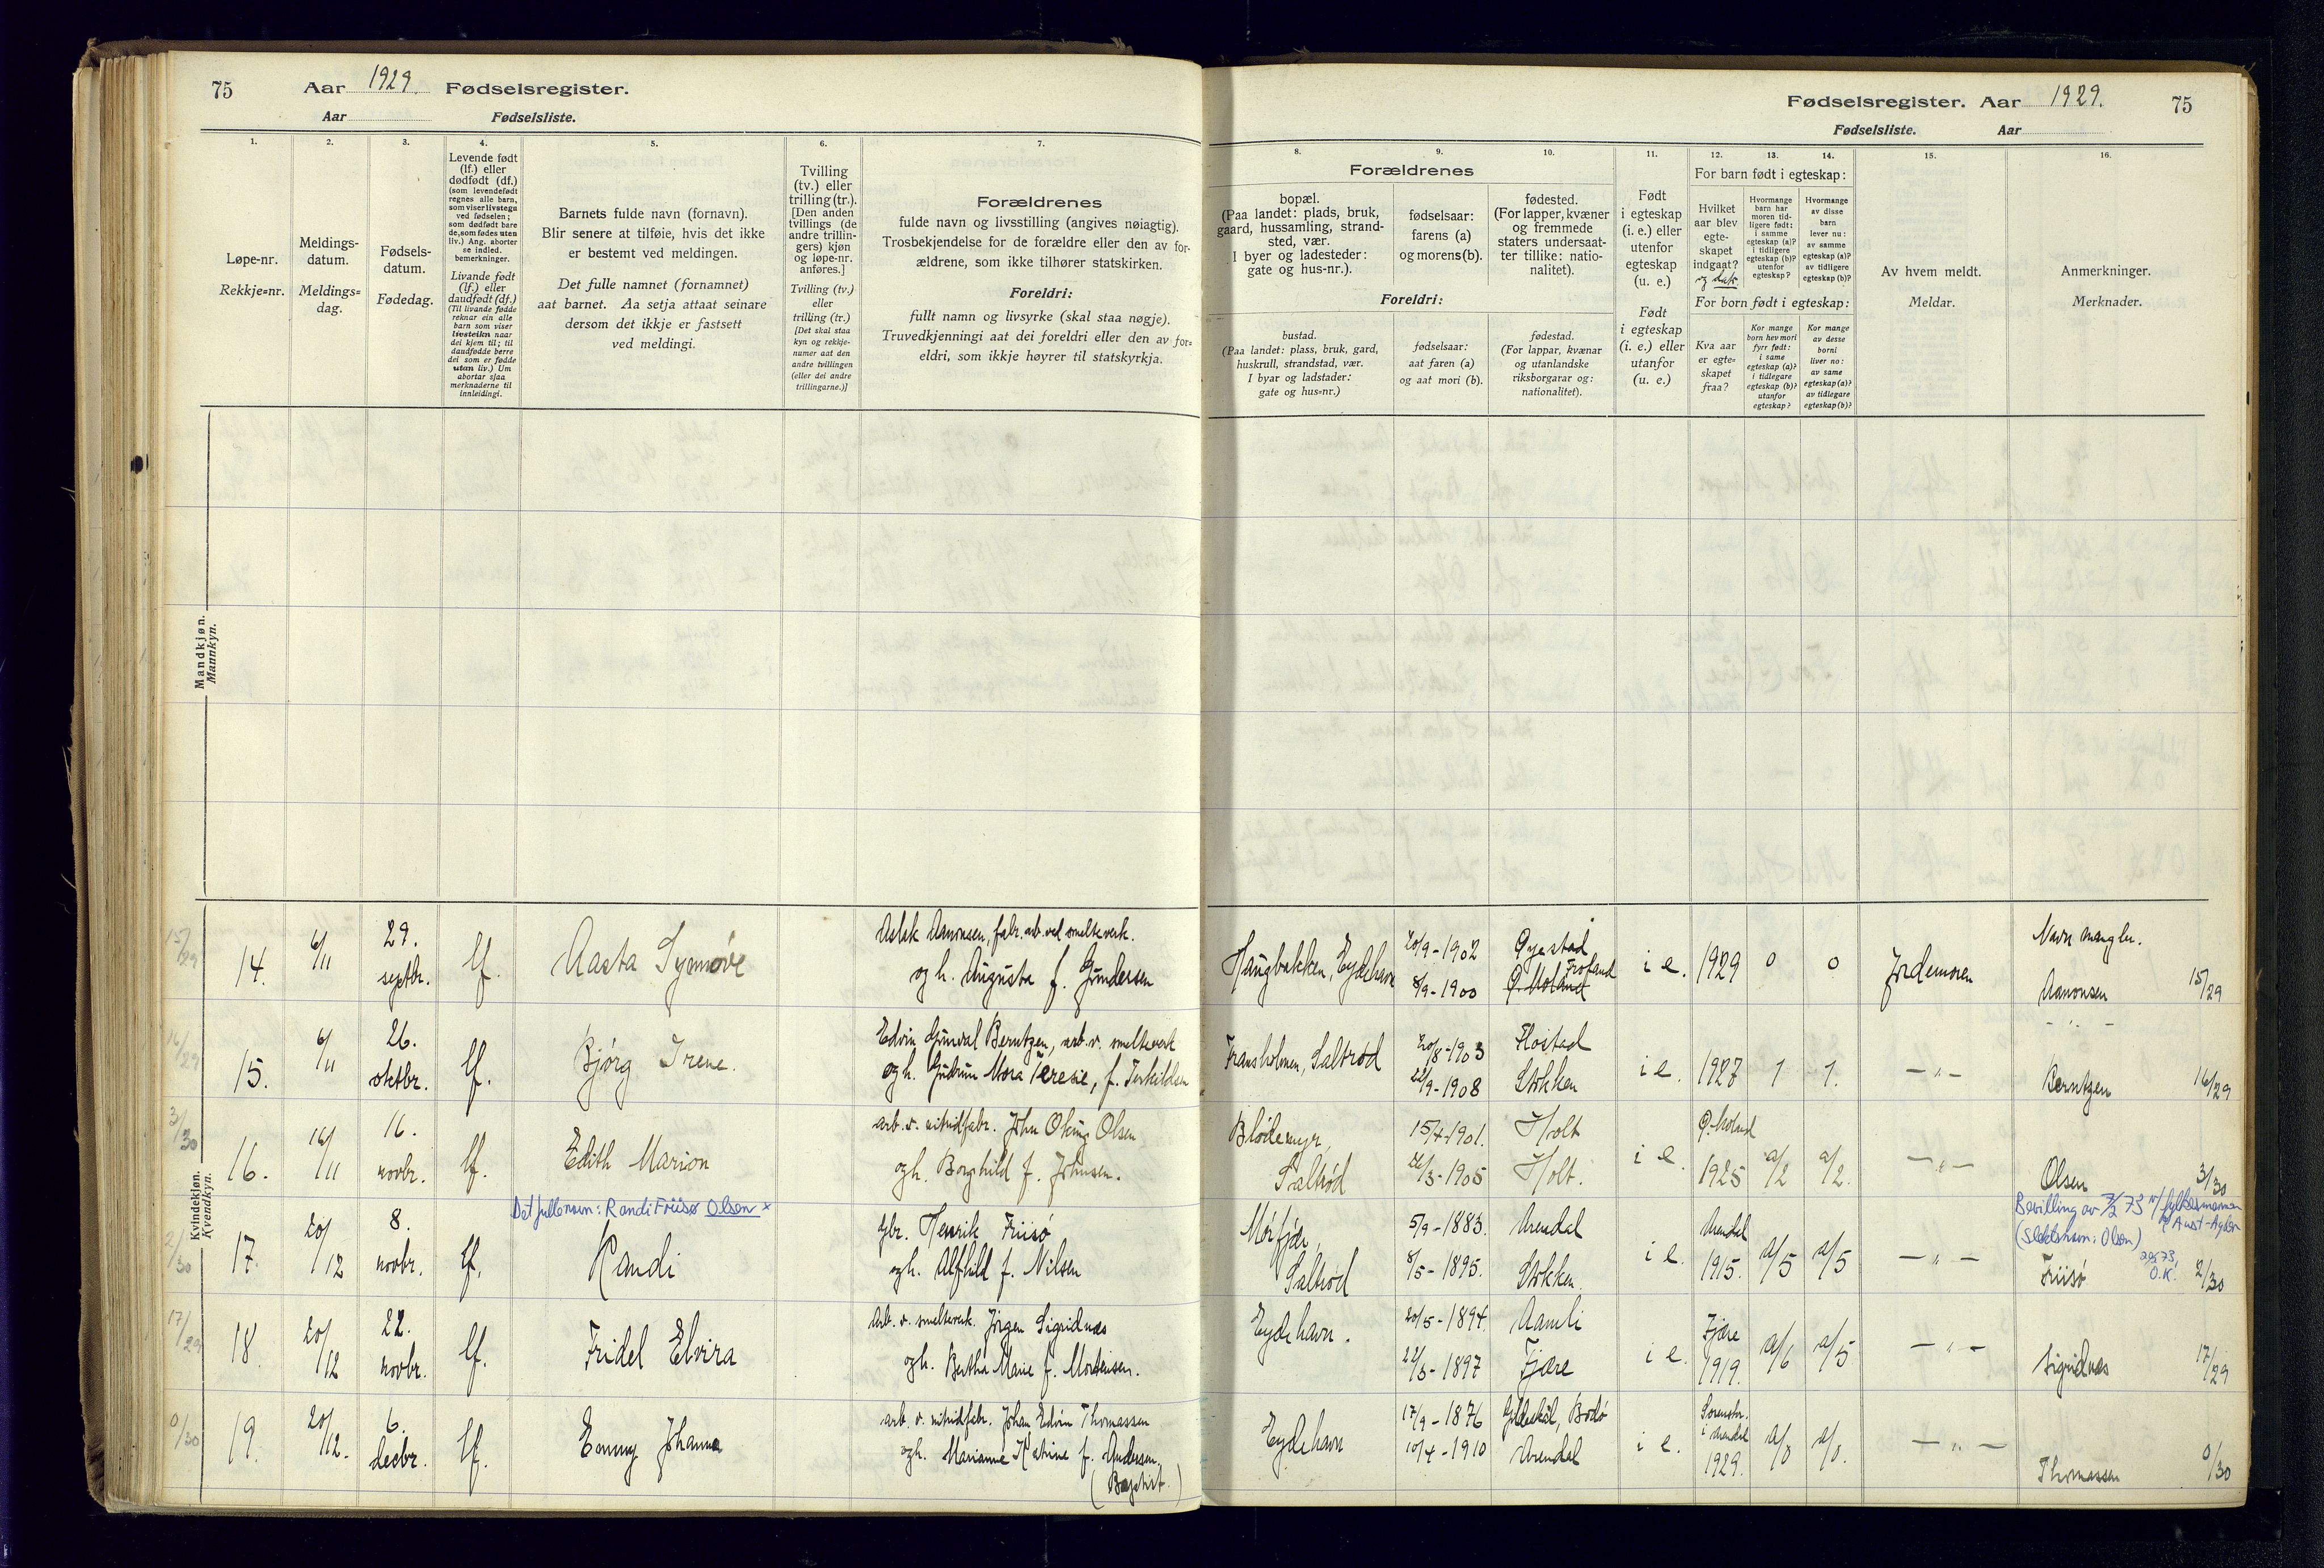 75 Aar 1929. Fødselsregister.
Aar Fødselsliste.
Fødselsregister. Aar 1929. 75
Fødselsliste. Aar
1.
Løpe-nr.
Rekkje=nr.
2.
Meldings-
datum.
Meldings=
dag.
3.
Fødsels-
datum.
Fødedag.
4.
Levende født
(lf.) eller
dødfødt (df.)
(som levendefødt
regnes alle barn,
som viser livstegn
ved fødselen;
som dødfødt bare
de, som fødes uten
liv.) Ang. aborter
se indled.
bemerkninger.
Livande født
(lf.) eller
daudfødt (df.)
(Til livande fødde
reknar ein alle
barn som viser
livsteikn naar
dei kjem til; til
daudfødde berre
dei som er fødde
utan liv.) Um
abortar sjaa
merknaderne til
innleidingi.
5.
Barnets fulde navn (fornavn).
Blir senere at tilføie, hvis det ikke
er bestemt ved meldingen.
Det fulle namnet (fornamnet)
aat barnet. Aa setja attaat seinare
dersom det ikkje er fastsett
ved meldingi.
6.
Tvilling
(tv.) eller
trilling (tr.).
[Den anden
tvillings (de
andre trillin-
gers) kjøn
og løpe-nr.
anføres.]
Tvilling (tv.)
eller
trilling (tr.)
[Det skal staa
kyn og rekkje-
numer aat den
andre tvillingen
(eller dei andre
trillingarne.)]
7.
Forældrenes
fulde navn og livsstilling (angives nøiagtig).
Trosbekjendelse for de forældre eller den av for-
ældrene, som ikke tilhører statskirken.
Foreldri:
fullt namn og livsyrke (skal staa nøgje).
Truvedkjenningi aat dei foreldri eller den av for=
eldri, som ikkje høyrer til statskyrkja.
8. 9. 10.
Forældrenes
bopæl.
(Paa landet: plads, bruk,
gaard, hussamling, strand-
sted, vær.
I byer og ladesteder:
gate og hus-nr.).
fødselsaar:
farens (a)
og morens (b).
fødested.
(For lapper, kvæner
og fremmede
staters undersaat-
ter tillike: natio-
nalitet).
Foreldri:
bustad.
(Paa landet: plass, bruk, gard,
huskrull, strandstad, vær.
I byar og ladstader:
gate og hus=nr.)
fødselsaar:
aat faren (a)
og aat mori (b).
fødestad.
(For lappar, kvænar
og utanlandske
riksborgarar og:
nationalitet).
11.
Født
i egteskap
(i. e.) eller
utenfor
egteskap
(u. e.)
Født
i egteskap
(i. e.) eller
utanfor
(u. e.)
12. 13. 14.
For barn født i egteskap:
Hvilket
aar blev
egte-
skapet
indgaat?
Hvormange
barn har
moren tid-
ligere født:
i samme
egteskap (a)?
i tidligere
egteskap (b)?
utenfor
egteskap?
Hvormange
av disse
barn
lever nu:
av samme
egteskap (a)?
av tidligere
egteskap (b)?
For born født i egteskap:
Kva aar
er egte=
skapet
fraa?
Kor mange
born hev mori
fyrr født:
i same
egteskap (a)?
i tidlegare
egteskap (b)?
utanfor
egteskap?
Kor mange
av desse
borni
liver no:
av same
egteskap (a)?
av tidlegare
egteskap (b)?
15.
Av hvem meldt.
Meldar.
16.
Anmerkninger.
Merknader.
Mandkjøn.
Mannkyn.
Kvindekjøn.
Kvendkyn.
15/29 14. 6/11 29. septbr. lf. Aasta Synnøve
Aslak Aanonsen, fabr.arb. ved smelteverk.
og h. Augusta f. Gundersen
Haugbakken, Eydehavn 20/9-1902 Øyestad
8/9-1900 Ø. Moland Froland
i e. 1929 0 0 Jordemoren
Navn mangler.
Aanonsen 15/29
16/29 15. 6/11 26. oktbr. lf. Bjørg Irene.
Edvin Gunval Berntzen, arb. v. smelteverk
og h. Gudrun Mora Teresie, f. Terkildsen
Fransholmen, Saltrød 20/8-1903 Flostad
22/9-1908 Stokken
i e. 1927 1 1. — „ —
Berntzen 16/29
3/30 16. 16/11 16. novbr. lf. Edith Marion
arb. v. nitridfabr. John Oking Olsen
og h. Borghild f. Johnsen.
Blødemyr, Saltrød 15/4-1901. Holt
26/3-1905 Holt.
i e. Ø. Moland 1925 a/2 a/2. — „ —
Olsen 3/30
Det fulle navn: Randi Friisø Olsen x
2/30 17. 20/12 8. novbr. lf. Randi
gbr. Henrik Friisø
og h. Alfhild f. Nilsen
Mørfjær, Saltrød 5/9-1883. Arendal
8/5-1895. Stokken
i e. Arendal 1915. a/5 a/5 — „ —
Bevilling av 7/2 73 fylkesmannen
i Aust-Agder
(Slektsnavn: Olsen)
O.K.
Friisø 2/30
17/29 18. 20/12 22. novbr. lf. Fridel Elvira
Arb. v. smelteverk. Jørgen Sigridnæs
og h. Bertha Marie f. Mortensen.
Eydehavn. 20/5-1894. Aamli
22/3-1897 Fjære
i e. Fjære 1919. a/6 a/5 — „ —
Sigridnæs 17/29
0/30 19. 20/12. 6. decbr. lf. Emmy Johanne
arb. v. nitridfabr. Johan Edvin Thomassen
og h. Marianne Katrine f. Andersen.
(Baptist.)
Eydehavn 17/9-1876 Gildeskål, Bodø
10/4-1910 Arendal
i e. Sorenskr. i Arendal 1929. a/0 a/0. — „ —
Thomassen 0/30